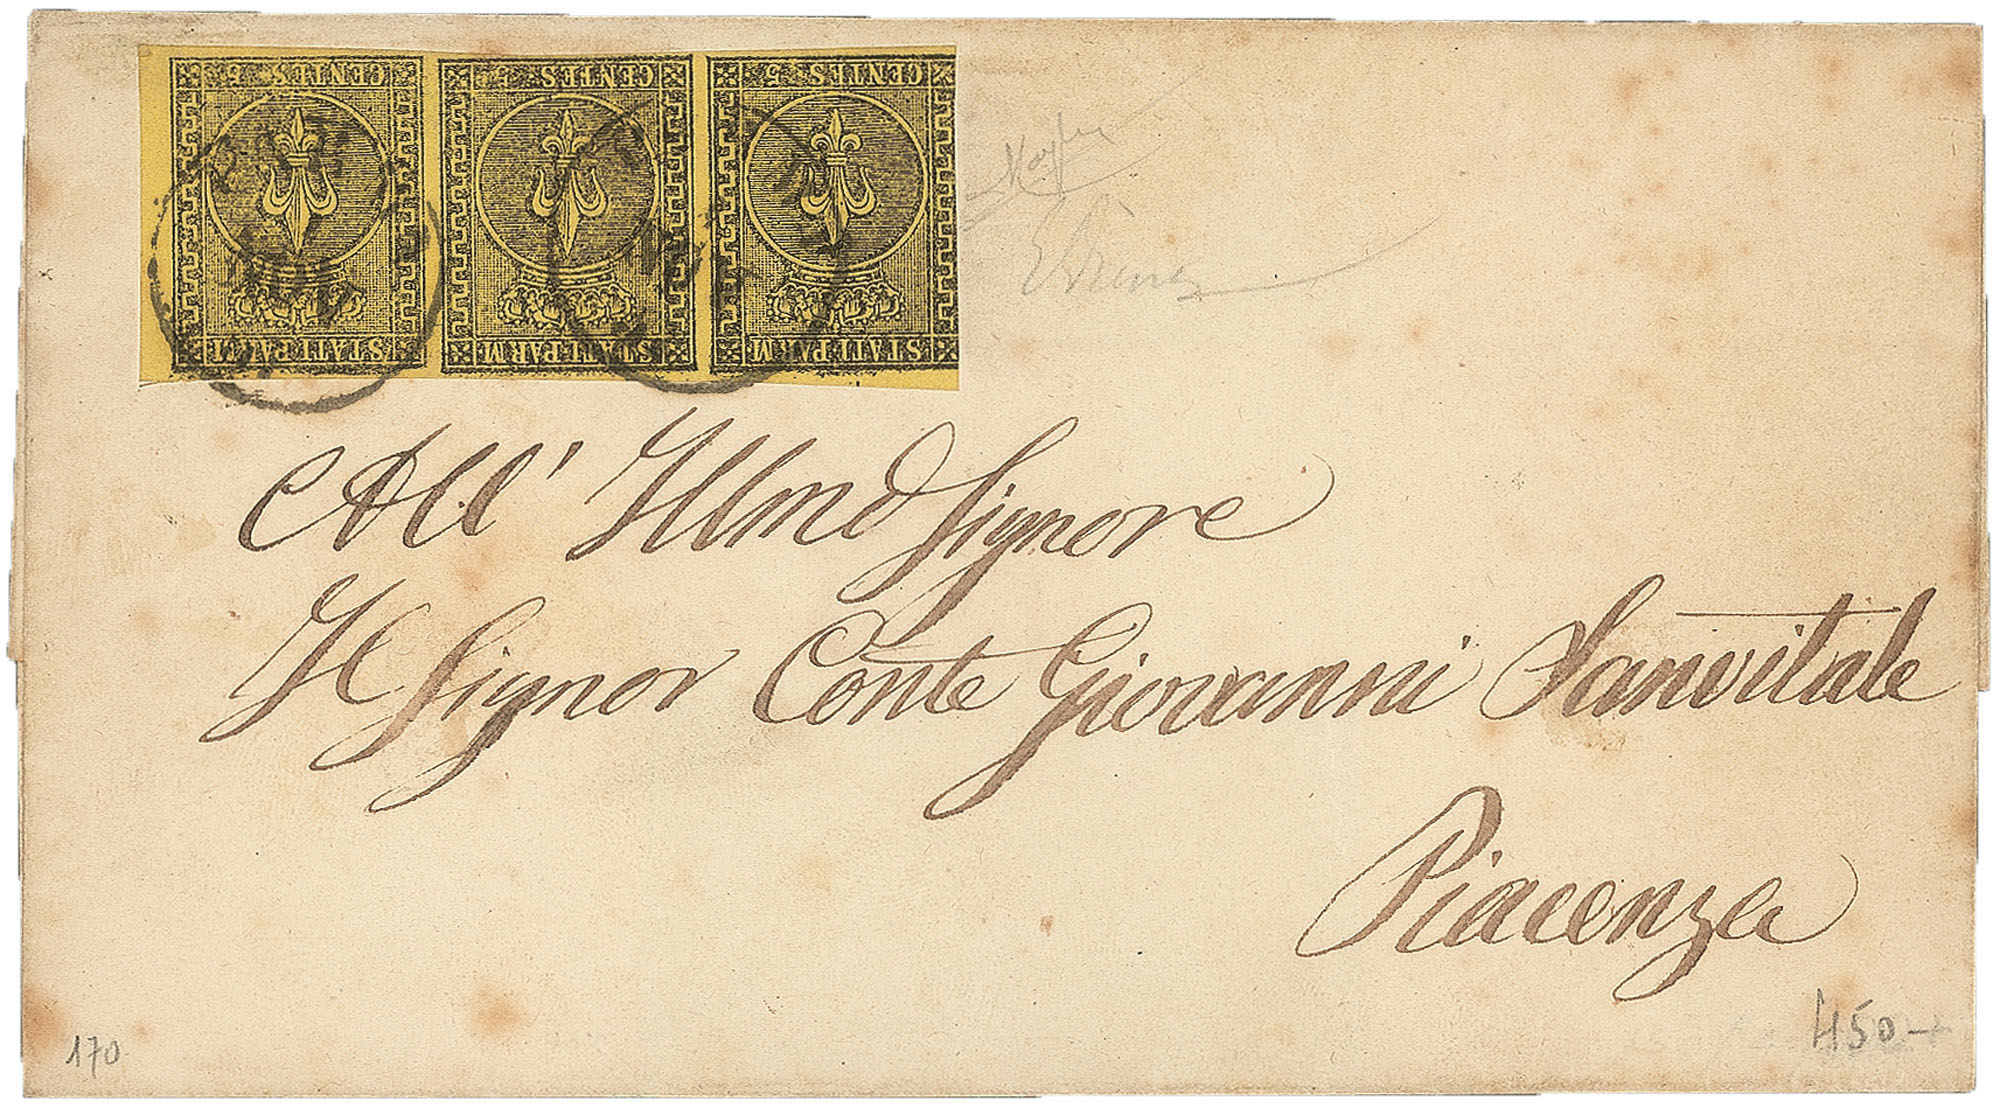 CENTES 5 CENTES 5 CENTES 5
STATI PARM STATI PARM STATI PARM
All' Illmo Signore
Il Signor Conte Giovanni Sanvitale
Piacenza
170
450-